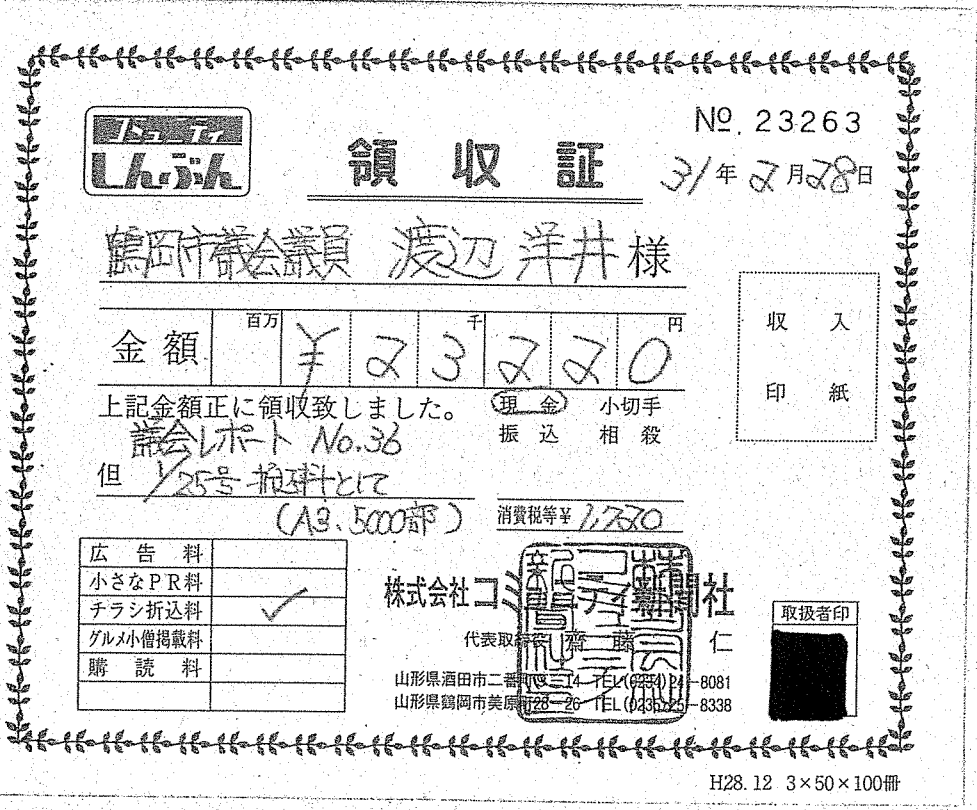 コミュニティ
しんぶん
領収証
No. 23263
31年2月28日
鶴岡市議会議員 渡辺 洋井 様
金額 百万 千 円
¥23220
収入
印紙
上記金額正に領収致しました。
現金 小切手
振込 相殺
議会レポート No.36
但 1/25号 折込料として
(A3、5000部)
消費税等¥1,720
広告料
小さなPR料
チラシ折込料 ✓
グルメ小僧掲載料
購読料
株式会社コミュニティ新聞社
代表取締役 齋藤 仁
山形県酒田市二番町 14 TEL(0234)24-8081
山形県鶴岡市美原町28-26 TEL(0235)25-8338
取扱者印
H28.12 3×50×100冊